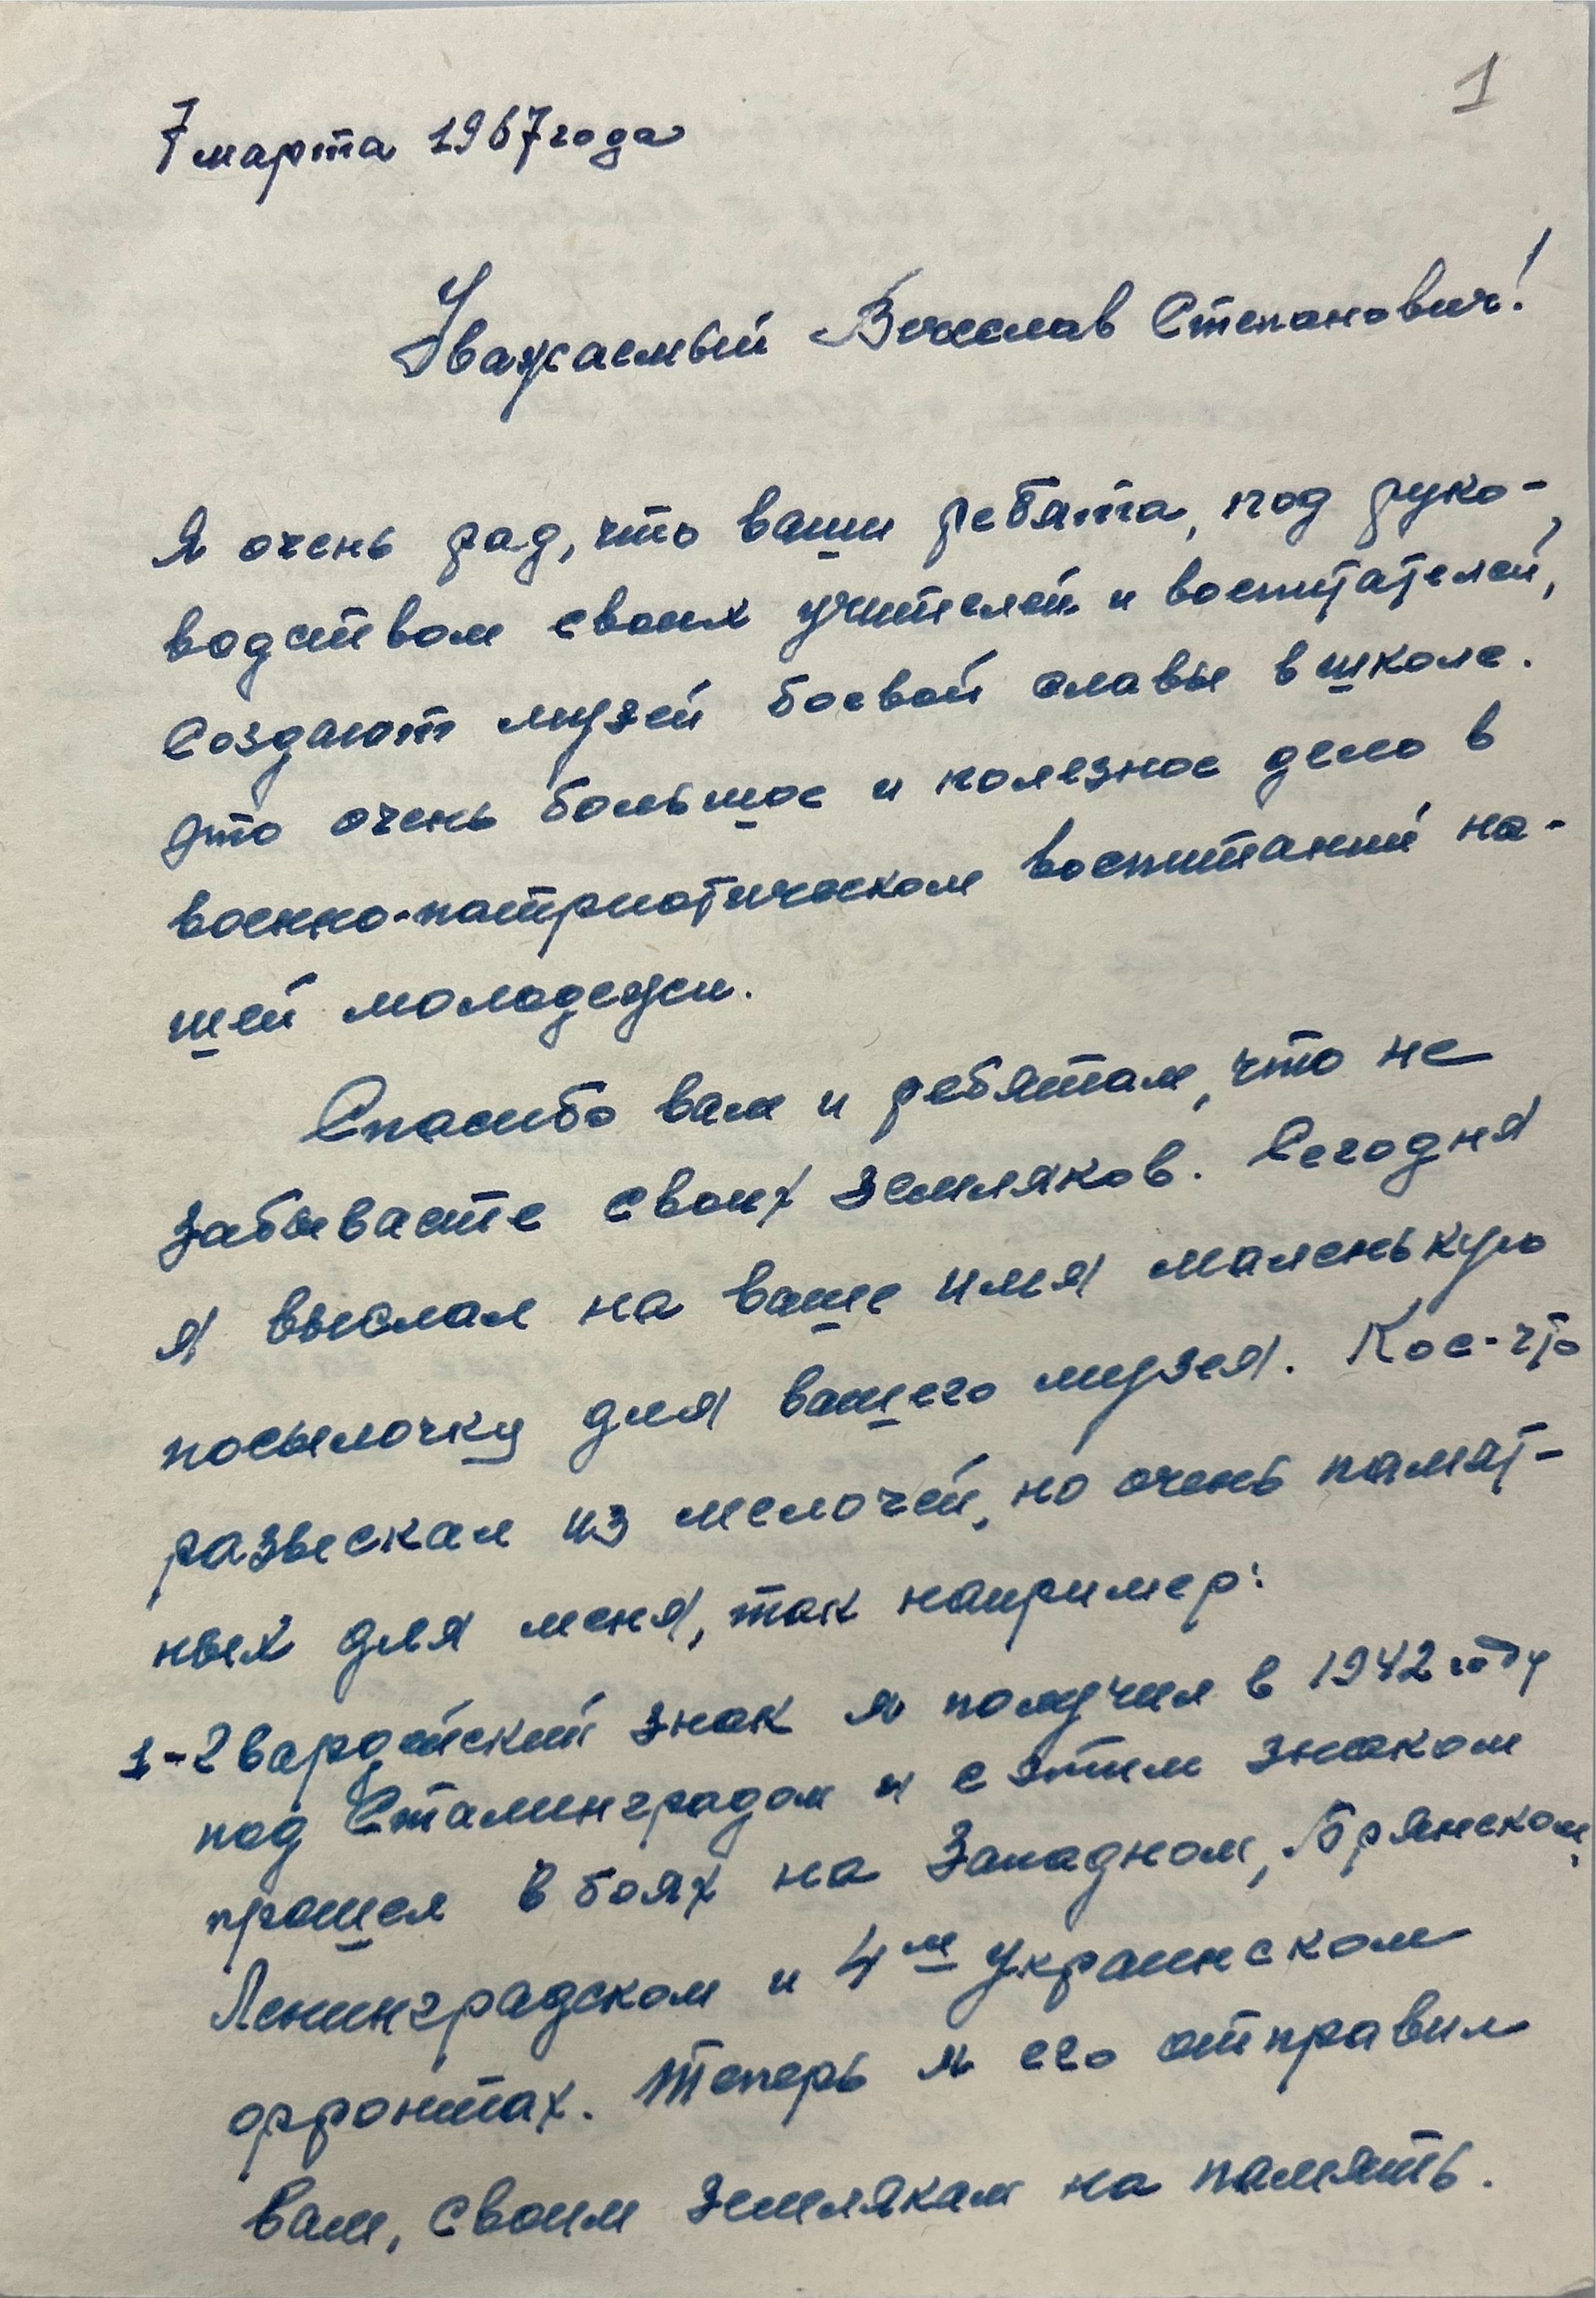 1
7 марта 1967 года
Уважаемый Вячеслав Степанович!
Я очень рад, что ваши ребята, под руко-
водством своих учителей и воспитателей,
создают музей боевой славы в школе.
Это очень большое и полезное дело в
военно-патриотическом воспитании на-
шей молодежи.
Спасибо вам и ребятам, что не
забываете своих земляков. Сегодня
я выслал на ваше имя маленькую
посылочку для вашего музея. Кое-что
разыскал из мелочей, но очень памят-
ных для меня, так например:
1 - Гвардейский знак я получил в 1942 году
под Сталинградом и с этим знаком
прошел в боях на Западном, Брянском,
Ленинградском и 4м Украинском
фронтах. Теперь я его отправил
вам, своим землякам на память.